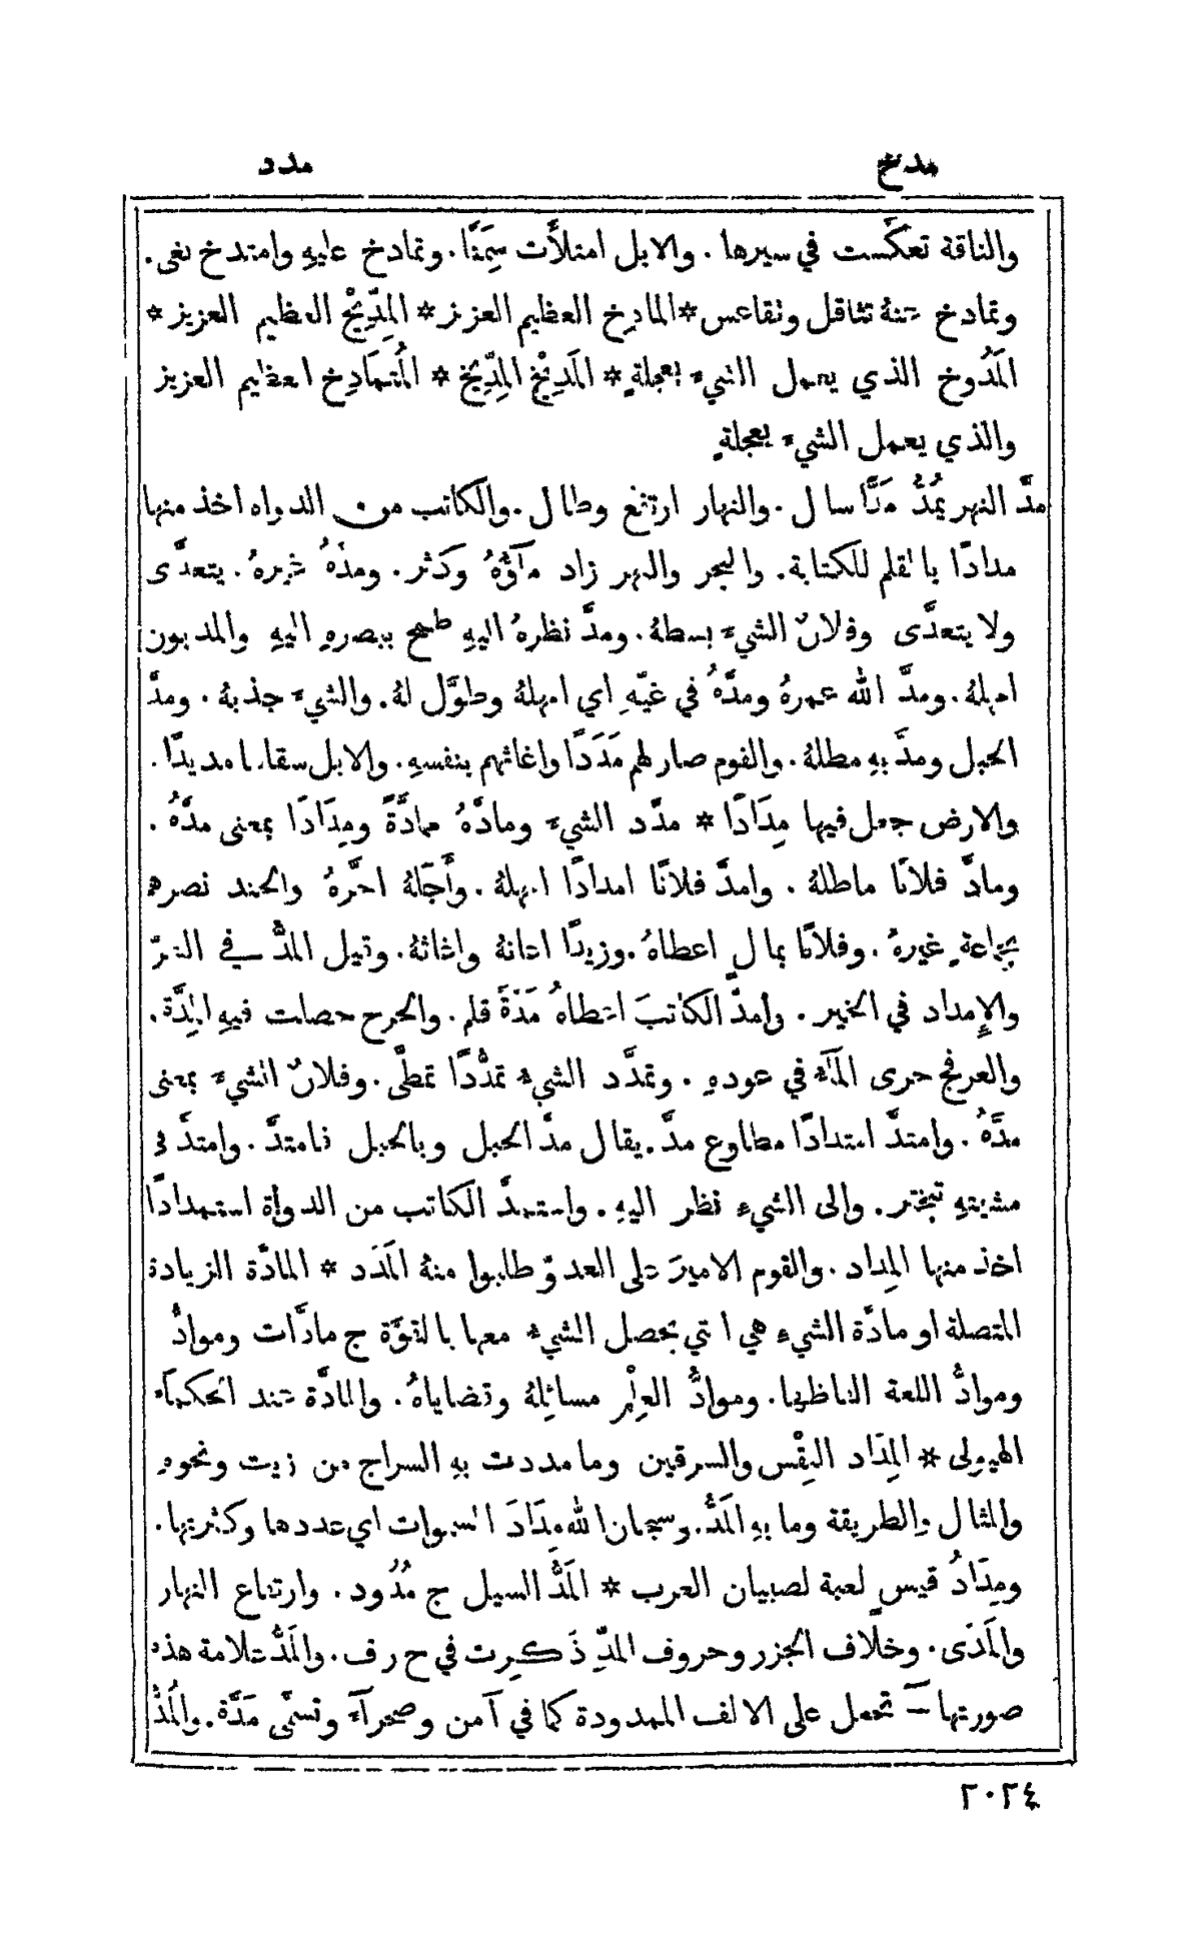 مدخ
مدد
والناقة تعكَّست في سيرها . والابل امتلأَت سِمَنًا . وتمادخ عليهِ وامتدخ بغى .
وتمادخ عنهُ تثاقل وتقاعس * المادِخ العظيم العزيز * المِدِّيْخ العظيم العزيز *
المَدُوخ الذي يعمل الشيءَ بعجلةٍ * المَدِيْخ المِدِّيخ * المُتمَادِخ العظيم العزيز
والذي يعمل الشيءَ بعجلةٍ
مدَّ النهر يمُدُّ مَدًّا سال . والنهار ارتفع وطال . والكاتب من الدواة اخذ منها
مدادًا بالقلم للكتابة . والبحر والنهر زاد مآؤُهُ وكثر . ومدَّهُ غيرهُ . يتعدَّى
ولا يتعدَّى وفلانٌ الشيءَ بسطهُ . ومدَّ نظرهُ اليهِ طمح ببصرهِ اليهِ والمديون
امهلهُ . ومدَّ الله عمرهُ ومدَّهُ في غيّهِ اي امهلهُ وطوَّل لهُ . والشيءَ جذبهُ . ومدَّ
الحبل ومدَّ بهِ مطلهُ . والقوم صار لهم مَدَدًا واغاثهم بنفسهِ . والابل سقاها مديدًا .
والارض جعل فيها مِدَادًا * مدَّد الشيءَ ومادَّهُ ممادَّةً ومِدَادًا بمعنى مدَّهُ .
ومادَّ فلانًا ماطلهُ . وامدَّ فلانًا امدادًا امهلهُ . وأَجَّلهُ اخَّرهُ والجند نصرهم
بجماعةٍ غيرهُ . وفلانًا بمالٍ اعطاهُ . وزيدًا اعانهُ واغاثهُ . وقيل المدُّ في الشرّ
والإِمداد في الخير . وأمدَّ الكاتبَ اعطاهُ مَدَّةَ قلم . والجرح حصلت فيهِ المِدَّة .
والعرفج جرى المآءُ في عودهِ . وتمدَّد الشيءُ تمدُّدًا تمطَّى . وفلانٌ الشيءَ بمعنى
مدَّهُ . وامتدَّ امتدادًا مطاوع مدَّ . يقال مدَّ الحبل وبالحبل فامتدَّ . وامتدَّ في
مشيتهِ تبختر . والى الشيءِ نظر اليهِ . واستمدَّ الكاتب من الدواة استمدادًا
اخذ منها المِداد . والقوم الاميرَ على العدوّ طلبوا منهُ المَدَد * المادَّة الزيادة
المتصلة او مادَّة الشيءِ هي التي يحصل الشيءُ معها بالقوَّة ج مادَّات وموادُّ
وموادُّ اللغة الفاظها . وموادُّ العِلْم مسائلهُ وقضاياهُ . والمادَّة عند الحكمآءِ
الهيولى * المِدَاد النِقْس والسرقين وما مددت بهِ السراج من زيت ونحوهِ
والمثال والطريقة وما بهِ المَدُّ . وسبحان الله مِدَادَ السموات اي عددها وكثرتها .
ومِدَادُ قيسٍ لعبة لصبيان العرب * المَدُّ السيل ج مُدُود . وارتفاع النهار
والمَدَى . وخلاف الجزر وحروف المدِّ ذُكِرت في ح ر ف . والمَدُّ علامة هذه
صورتها ~ تجعل على الالف الممدودة كما في آمن وصحرآءَ وتسمَّى مَدَّة . والمُدُّ
٢٠٢٤